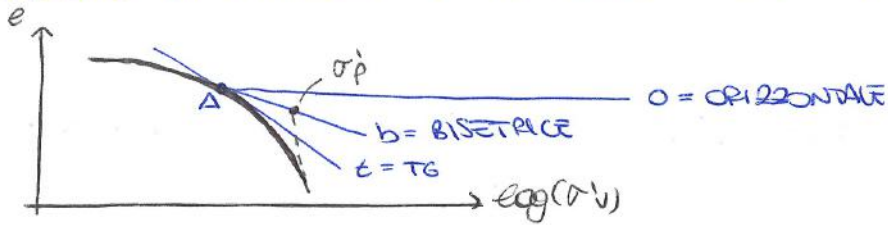 e
σ'p
A
O = ORIZZONTALE
b = BISETRICE
t = TG
log(σ'v)